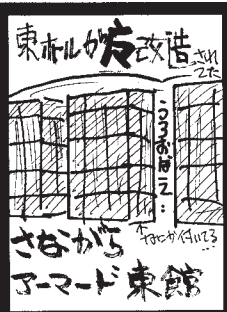 東ホールが大改造されてた
うろおぼえ…
↑なにか付いてる…
さながら
アーマード東館